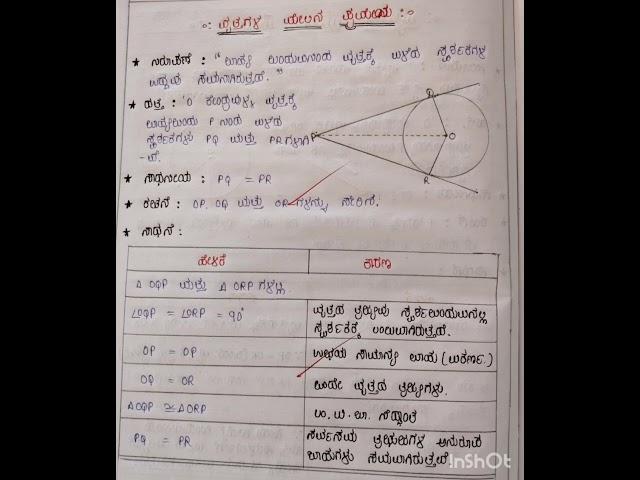 : ವೃತ್ತಗಳ ಮೇಲಿನ ಪ್ರಮೇಯ :
★ ನಿರೂಪಣೆ : " ಬಾಹ್ಯ ಬಿಂದುವಿನಿಂದ ವೃತ್ತಕ್ಕೆ ಎಳೆದ ಸ್ಪರ್ಶಕಗಳ
ಉದ್ದವು ಸಮನಾಗಿರುತ್ತದೆ. "
★ ದತ್ತ : 'O' ಕೇಂದ್ರವುಳ್ಳ ವೃತ್ತಕ್ಕೆ
ಬಾಹ್ಯಬಿಂದು P ನಿಂದ ಎಳೆದ
ಸ್ಪರ್ಶಕಗಳು PQ ಮತ್ತು PR ಗಳಾಗಿ
-ವೆ.
P
Q
O
R
★ ಸಾಧನೀಯ : PQ = PR
★ ರಚನೆ : OP, OQ ಮತ್ತು OR ಗಳನ್ನು ಸೇರಿಸಿ.
★ ಸಾಧನೆ :
ಹೇಳಿಕೆ ಕಾರಣ
Δ OQP ಮತ್ತು Δ ORP ಗಳಲ್ಲಿ
∠OQP = ∠ORP = 90° ವೃತ್ತದ ತ್ರಿಜ್ಯವು ಸ್ಪರ್ಶಬಿಂದುವಿನಲ್ಲಿ
ಸ್ಪರ್ಶಕಕ್ಕೆ ಲಂಬವಾಗಿರುತ್ತದೆ.
OP = OP ಉಭಯ ಸಾಮಾನ್ಯ ಬಾಹು (ವಿಕರ್ಣ.)
OQ = OR ಒಂದೇ ವೃತ್ತದ ತ್ರಿಜ್ಯಗಳು.
ΔOQP ≅ ΔORP ಲಂ. ವಿ. ಬಾ. ಸಿದ್ಧಾಂತ
PQ = PR ಸರ್ವಸಮ ತ್ರಿಭುಜಗಳ ಅನುರೂಪ
ಬಾಹುಗಳು ಸಮವಾಗಿರುತ್ತವೆ.
InShOt